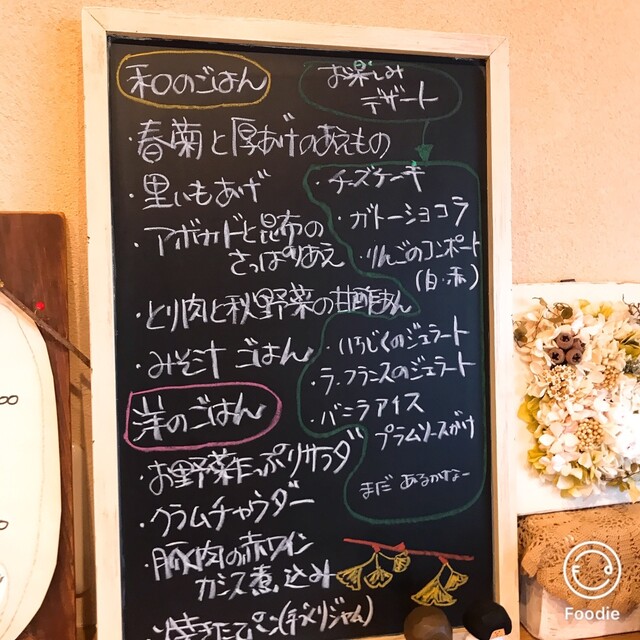 和のごはん
・春菊と厚あげのあえもの
・里いもあげ
・アボカドと昆布の
さっぱりあえ
・とり肉と秋野菜の甘酢あん
・みそ汁 ごはん
洋のごはん
・お野菜たっぷりサラダ
・クラムチャウダー
・豚肉の赤ワイン
カシス煮込み
・焼きたてパン(手づくりジャム)
お楽しみ
デザート
・チーズケーキ
・ガトーショコラ
・りんごのコンポート
(白・赤)
・いちじくのジェラート
・ラ・フランスのジェラート
・バニラアイス
プラムソースがけ
まだ あるかなー
Foodie